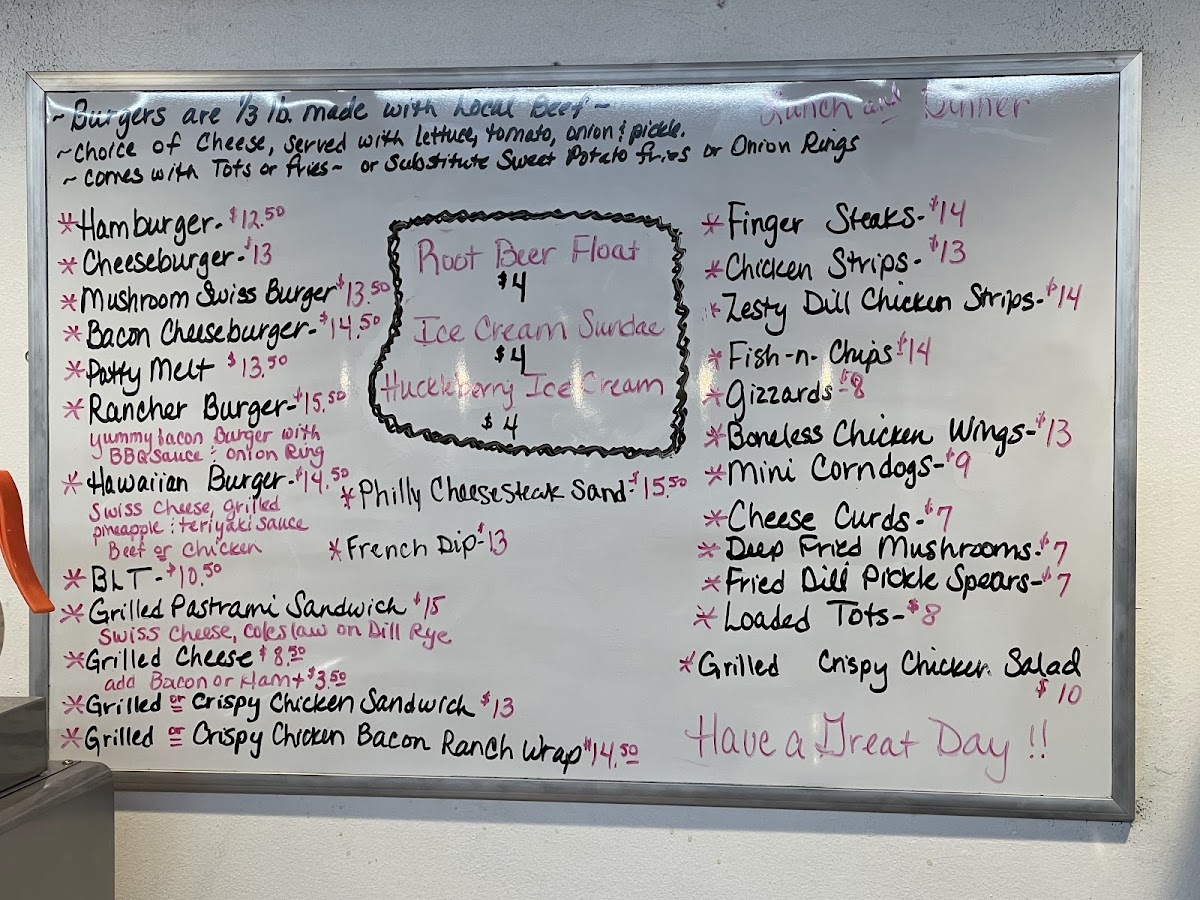 Lunch and Dinner
~Burgers are 1/3 lb. made with Local Beef~
~Choice of Cheese, served with lettuce, tomato, onion & pickle.
~comes with Tots or fries~ or Substitute Sweet Potato fries or Onion Rings
*Hamburger-$12.50
*Cheeseburger-$13
*Mushroom Swiss Burger $13.50
*Bacon Cheeseburger-$14.50
*Patty Melt $13.50
*Rancher Burger-$15.50
yummy bacon Burger with
BBQ Sauce & onion Ring
*Hawaiian Burger-$14.50
Swiss Cheese, grilled
pineapple & teriyaki sauce
Beef or Chicken
*BLT-$10.50
*Grilled Pastrami Sandwich $15
Swiss Cheese, Coleslaw on Dill Rye
*Grilled Cheese $8.50
add Bacon or Ham + $3.50
*Grilled or Crispy Chicken Sandwich $13
*Grilled or Crispy Chicken Bacon Ranch Wrap $14.50
Root Beer Float
$4
Ice Cream Sundae
$4
Huckleberry Ice Cream
$4
*Philly Cheesesteak Sand-$15.50
*French Dip-$13
*Finger Steaks-$14
*Chicken Strips-$13
*Zesty Dill Chicken Strips-$14
*Fish-n-Chips $14
*Gizzards-$8
*Boneless Chicken Wings-$13
*Mini Corndogs-$9
*Cheese Curds-$7
*Deep Fried Mushrooms-$7
*Fried Dill Pickle Spears-$7
*Loaded Tots-$8
*Grilled Crispy Chicken Salad
$10
Have a Great Day!!